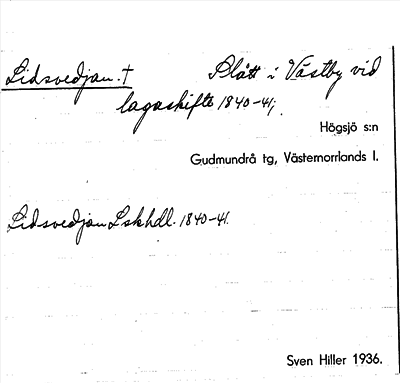 Lidsvedjan. † Slått i Västby vid
lagaskifte 1840-41;
Högsjö s:n
Gudmundrå tg, Västernorrlands l.
Lidsvedjan Lskhdl. 1840-41.
Sven Hiller 1936.